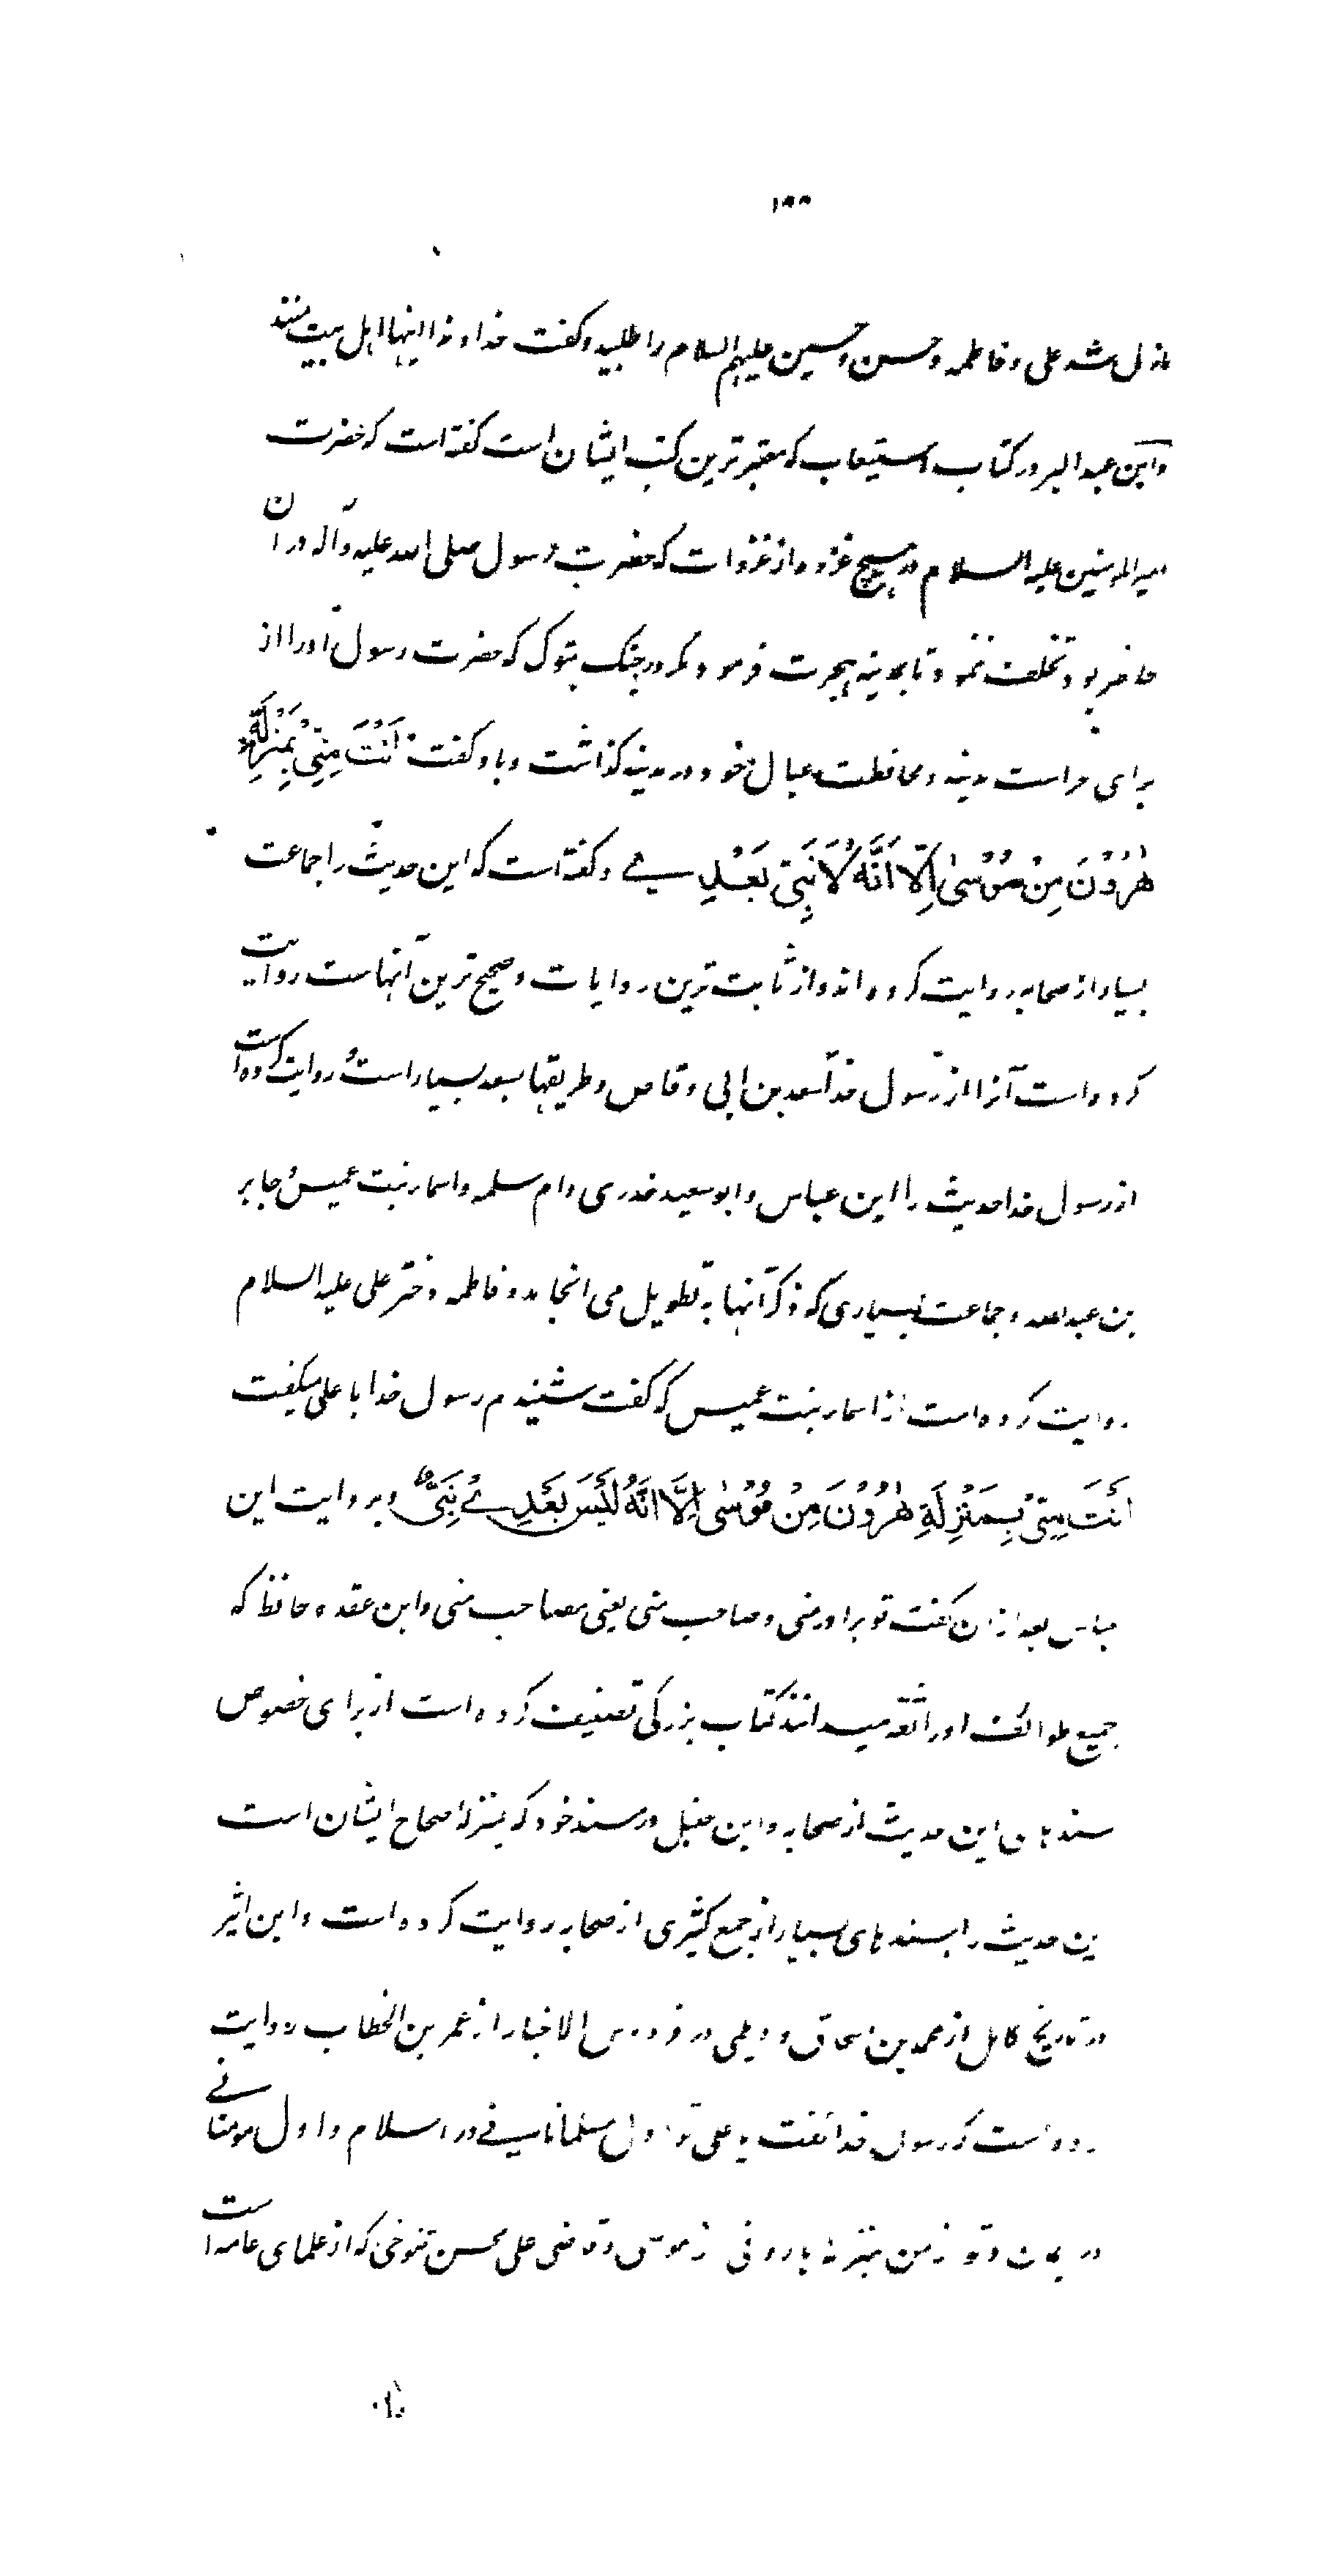 ۱۹۹
نازل شد علی و فاطمه و حسن و حسین علیهم السلام را طلبید و گفت خداوندا اینها اهل بیت منند
و ابن عبد البر در کتاب استیعاب که معتبر ترین کتب ایشان است گفته است که حضرت
امیر المومنین علیه السلام در هیچ غزوه از غزوات که حضرت رسول صلی الله علیه و آله در آن
حاضر بود تخلف ننمود تا بمدینه هجرت فرمود مگر در جنگ تبوک که حضرت رسول او را از
برای حراست مدینه و محافظت عیال خود در مدینه گذاشت و باو گفت اَنْتَ مِنِّیْ بِمَنْزِلَةِ
هٰرُوْنَ مِنْ مُوْسٰی اِلَّا اَنَّهُ لَا نَبِیَّ بَعْدِیْ و گفته است که این حدیث را جماعت
بسیار از صحابه روایت کرده اند و از ثابت ترین روایات و صحیح ترین آنهاست روایت
کرده است آنرا از رسول خدا سعد بن ابی وقاص و طریقها بسعد بسیار است و روایت کرده است
از رسول خدا حدیث را ابن عباس و ابو سعید خدری و ام سلمه و اسماء بنت عمیس و جابر
بن عبد الله و جماعت بسیاری که ذکر آنها به تطویل می انجامد و فاطمه دختر علی علیه السلام
روایت کرده است از اسماء بنت عمیس که گفت شنیدم رسول خدا با علی میگفت
اَنْتَ مِنِّیْ بِمَنْزِلَةِ هٰرُوْنَ مِنْ مُوْسٰی اِلَّا اَنَّهُ لَیْسَ بَعْدِیْ نَبِیٌّ و بروایت ابن
عباس بعد از آن گفت تو برادر منی و صاحب منی یعنی مصاحب منی و ابن عقده حافظ که
جمیع طوائف او را ثقه میدانند کتاب بزرگی تصنیف کرده است از برای خصوص
سندهای این حدیث از صحابه و ابن حنبل در مسند خود که بمنزلهٔ صحاح ایشان است
این حدیث را بسندهای بسیار از جمع کثیری از صحابه روایت کرده است و ابن اثیر
در تاریخ کامل از محمد بن اسحاق و دیلمی در فردوس الاخبار از عمر بن الخطاب روایت
کرده است که رسول خدا گفت یا علی تو اول مسلمانانی در اسلام و اول مومنانی
در ایمان و تو از من بمنزلهٔ هارونی از موسی و قاضی علی محسن تنوخی که از علمای عامه است